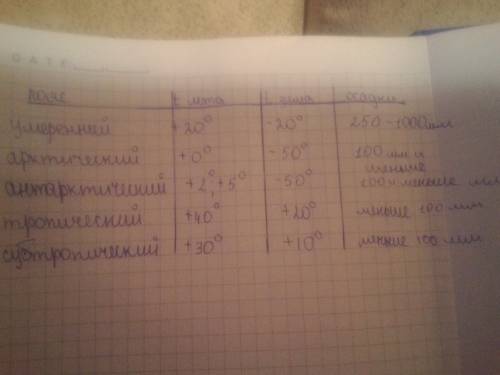 DATE
пояс t лета t зима осадки
умеренный +20° -20° 250-1000мм
арктический +0° -50° 100 мм и меньше
антарктический +2°,+5° -50° 100 и меньше мм
тропический +40° +20° меньше 100 мм
субтропический +30° +10° меньше 100 мм